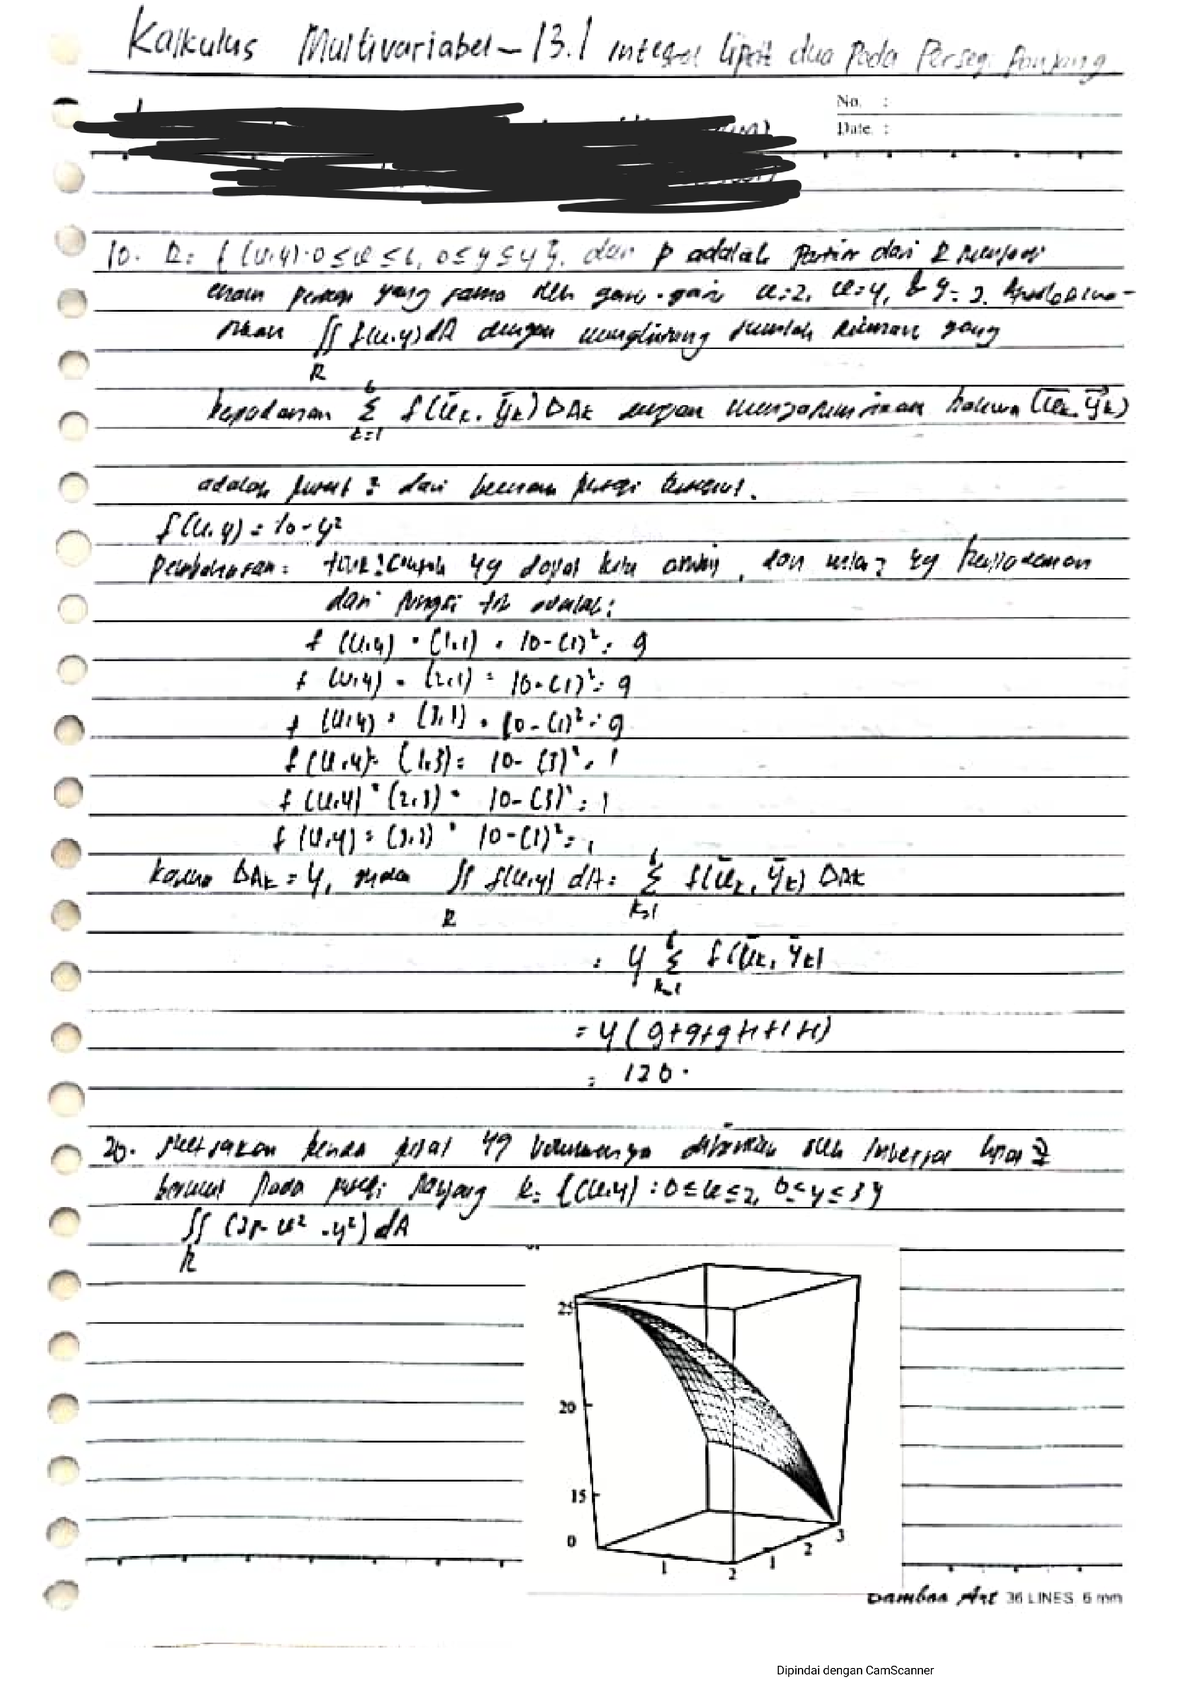 Kalkulus Multivariabel - 13.1 Integral lipat dua pada Persegi Panjang
No. :
Date. :
10. R = { (x,y) : 0 ≤ x ≤ 6, 0 ≤ y ≤ 4 }. dan P adalah Partisi dari R menjadi
enam persegi yang sama oleh garis-garis x=2, x=4, & y=2.
∬ f(x,y) dA dengan menghitung jumlah Riemann yang
R
6
Σ f(x̄k, ȳk) ΔAk dengan mengasumsikan bahwa (x̄k, ȳk)
k=1
adalah pusat 2 dari persegi tersebut.
f(x,y) = 10-y²
Pembahasan : yg dapat kita ambil, dan nilai2 yg
dari fungsi tsb adalah :
f (x,y) = (1,1) = 10-(1)² = 9
f (x,y) = (2,1) = 10-(1)² = 9
f (x,y) = (3,1) = 10-(1)² = 9
f (x,y) = (1,3) = 10-(3)² = 1
f (x,y) = (2,3) = 10-(3)² = 1
f (x,y) = (3,3) = 10-(1)² = 1
karena ΔAk = 4, maka ∬ f(x,y) dA = Σ f(x̄k, ȳk) ΔAk
R k=1
= 4 Σ f(x̄k, ȳk)
k=1
= 4 ( 9+9+9+1+1+1)
= 120.
20. Sketsakan benda pejal yg volumenya oleh Integral lipat 2
berikut Pada persegi Panjang R = {(x,y) : 0 ≤ x ≤ 2, 0 ≤ y ≤ 3}
∬ (25-x²-y²) dA
R
25
20
15
0
1
2
1
2
3
Bamboo Art 36 LINES 6 mm
Dipindai dengan CamScanner